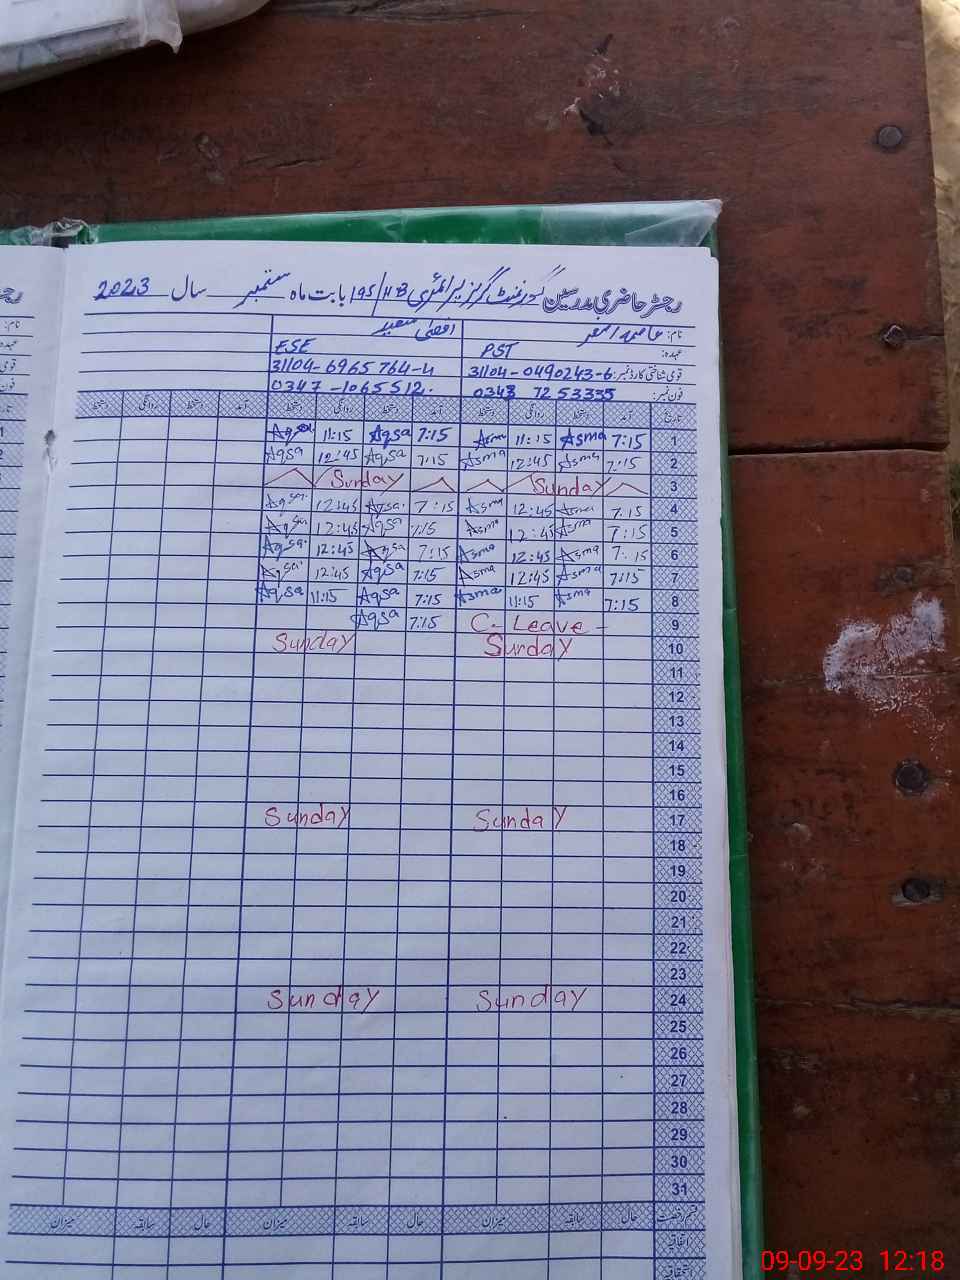 رجسٹر حاضری مدرسین گورنمنٹ گرلز پرائمری 195/HB بابت ماہ ستمبر سال 2023
نام: عاصمہ اصغر اقصیٰ سعید
عہدہ: PST ESE
قومی شناختی کارڈ نمبر: 31104-0490243-6 31104-6965764-4
فون نمبر: 0343 7253335 0347-1065512
تاریخ آمد دستخط روانگی دستخط آمد دستخط روانگی دستخط آمد دستخط روانگی دستخط
1 7:15 Asma 11:15 Asma 7:15 Aqsa 11:15 Aqsa
2 7:15 Asma 12:45 Asma 7:15 Aqsa 12:45 Aqsa
3 Sunday Sunday
4 7:15 Asma 12:45 Asma 7:15 Aqsa 12:45 Aqsa
5 7:15 Asma 12:45 Asma 7:15 Aqsa 12:45 Aqsa
6 7:15 Asma 12:45 Asma 7:15 Aqsa 12:45 Aqsa
7 7:15 Asma 12:45 Asma 7:15 Aqsa 12:45 Aqsa
8 7:15 Asma 11:15 Asma 7:15 Aqsa 11:15 Aqsa
9 C. Leave - 7:15 Aqsa
10 Sunday Sunday
11
12
13
14
15
16
17 Sunday Sunday
18
19
20
21
22
23
24 Sunday Sunday
25
26
27
28
29
30
31
قسم رخصت حال سابقہ میزان حال سابقہ میزان حال سابقہ میزان
اتفاقیہ
استحقاقیہ
09-09-23 12:18